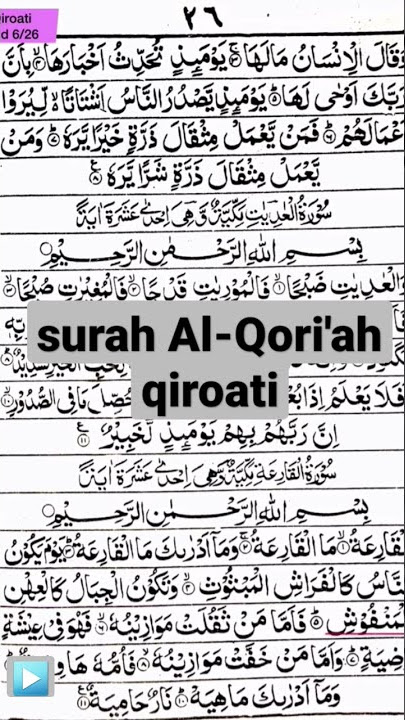 ٢٦
iroati
d 6/26
وَقَالَ الْاِنْسَانُ مَالَهَا ۝٣ يَوْمَئِذٍ تُحَدِّثُ اَخْبَارَهَا ۝٤ بِاَنَّ
رَبَّكَ اَوْحٰى لَهَا ۝٥ يَوْمَئِذٍ يَّصْدُرُ النَّاسُ اَشْتَاتًا ۝٥ لِّيُرَوْا
عْمَالَهُمْ ۝٦ فَمَنْ يَّعْمَلْ مِثْقَالَ ذَرَّةٍ خَيْرًا يَّرَهٗ ۝٧ وَمَنْ
يَّعْمَلْ مِثْقَالَ ذَرَّةٍ شَرًّا يَّرَهٗ ۝٨
سُوْرَةُ الْعٰدِيٰتِ مَكِّيَّةٌ وَّهِىَ اِحْدٰى عَشْرَةَ اٰيَةً
بِسْمِ اللهِ الرَّحْمٰنِ الرَّحِيْمِ
وَالْعٰدِيٰتِ ضَبْحًا ۝١ فَالْمُوْرِيٰتِ قَدْحًا ۝٢ فَالْمُغِيْرٰتِ صُبْحًا ۝٣
surah Al-Qori'ah
qiroati
فَلَا يَعْلَمُ اِذَا بُعْ حُصِّلَ مَا فِى الصُّدُوْرِ ۝١٠
اِنَّ رَبَّهُمْ بِهِمْ يَوْمَئِذٍ لَّخَبِيْرٌ ۝١١
سُوْرَةُ الْقَارِعَةِ مَكِّيَّةٌ وَّهِىَ اِحْدٰى عَشْرَةَ اٰيَةً
بِسْمِ اللهِ الرَّحْمٰنِ الرَّحِيْمِ
لْقَارِعَةُ ۝١ مَا الْقَارِعَةُ ۝٢ وَمَآ اَدْرٰىكَ مَا الْقَارِعَةُ ۝٣ يَوْمَ يَكُوْنُ
لنَّاسُ كَالْفَرَاشِ الْمَبْثُوْثِ ۝٤ وَتَكُوْنُ الْجِبَالُ كَالْعِهْنِ
لْمَنْفُوْشِ ۝٥ فَاَمَّا مَنْ ثَقُلَتْ مَوَازِيْنُهٗ ۝٦ فَهُوَ فِيْ عِيْشَةٍ
ضِيَةٍ ۝٧ وَاَمَّا مَنْ خَفَّتْ مَوَازِيْنُهٗ ۝٨ فَاُمُّهٗ هَاوِ
وَمَآ اَدْرٰىكَ مَاهِيَهْ ۝١٠ نَارٌ حَامِيَةٌ ۝١١